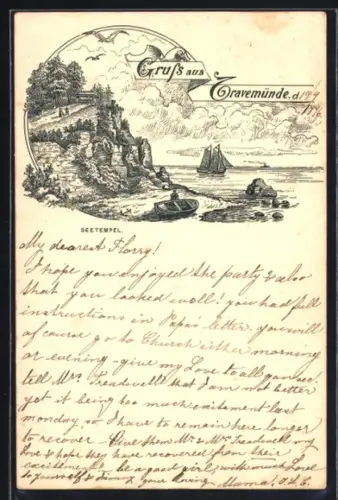 Gruß aus
Travemünde. d.
SEETEMPEL.
My dearest Florry!
I hope you enjoyed the party & also
that you looked well! you had full
instructions in Papa's letter. you will
of course go to Church either morning
or evening - give my Love to all you see!
tell Mrs. Treadwell that I am not better
yet it being too much excitement last
monday so I have to remain here longer
to recover Give them Mr & Mrs Treadwell my
Love & hope they have recovered from their
excitement & be a good girl, with much Love
to yourself & from your loving Mama,